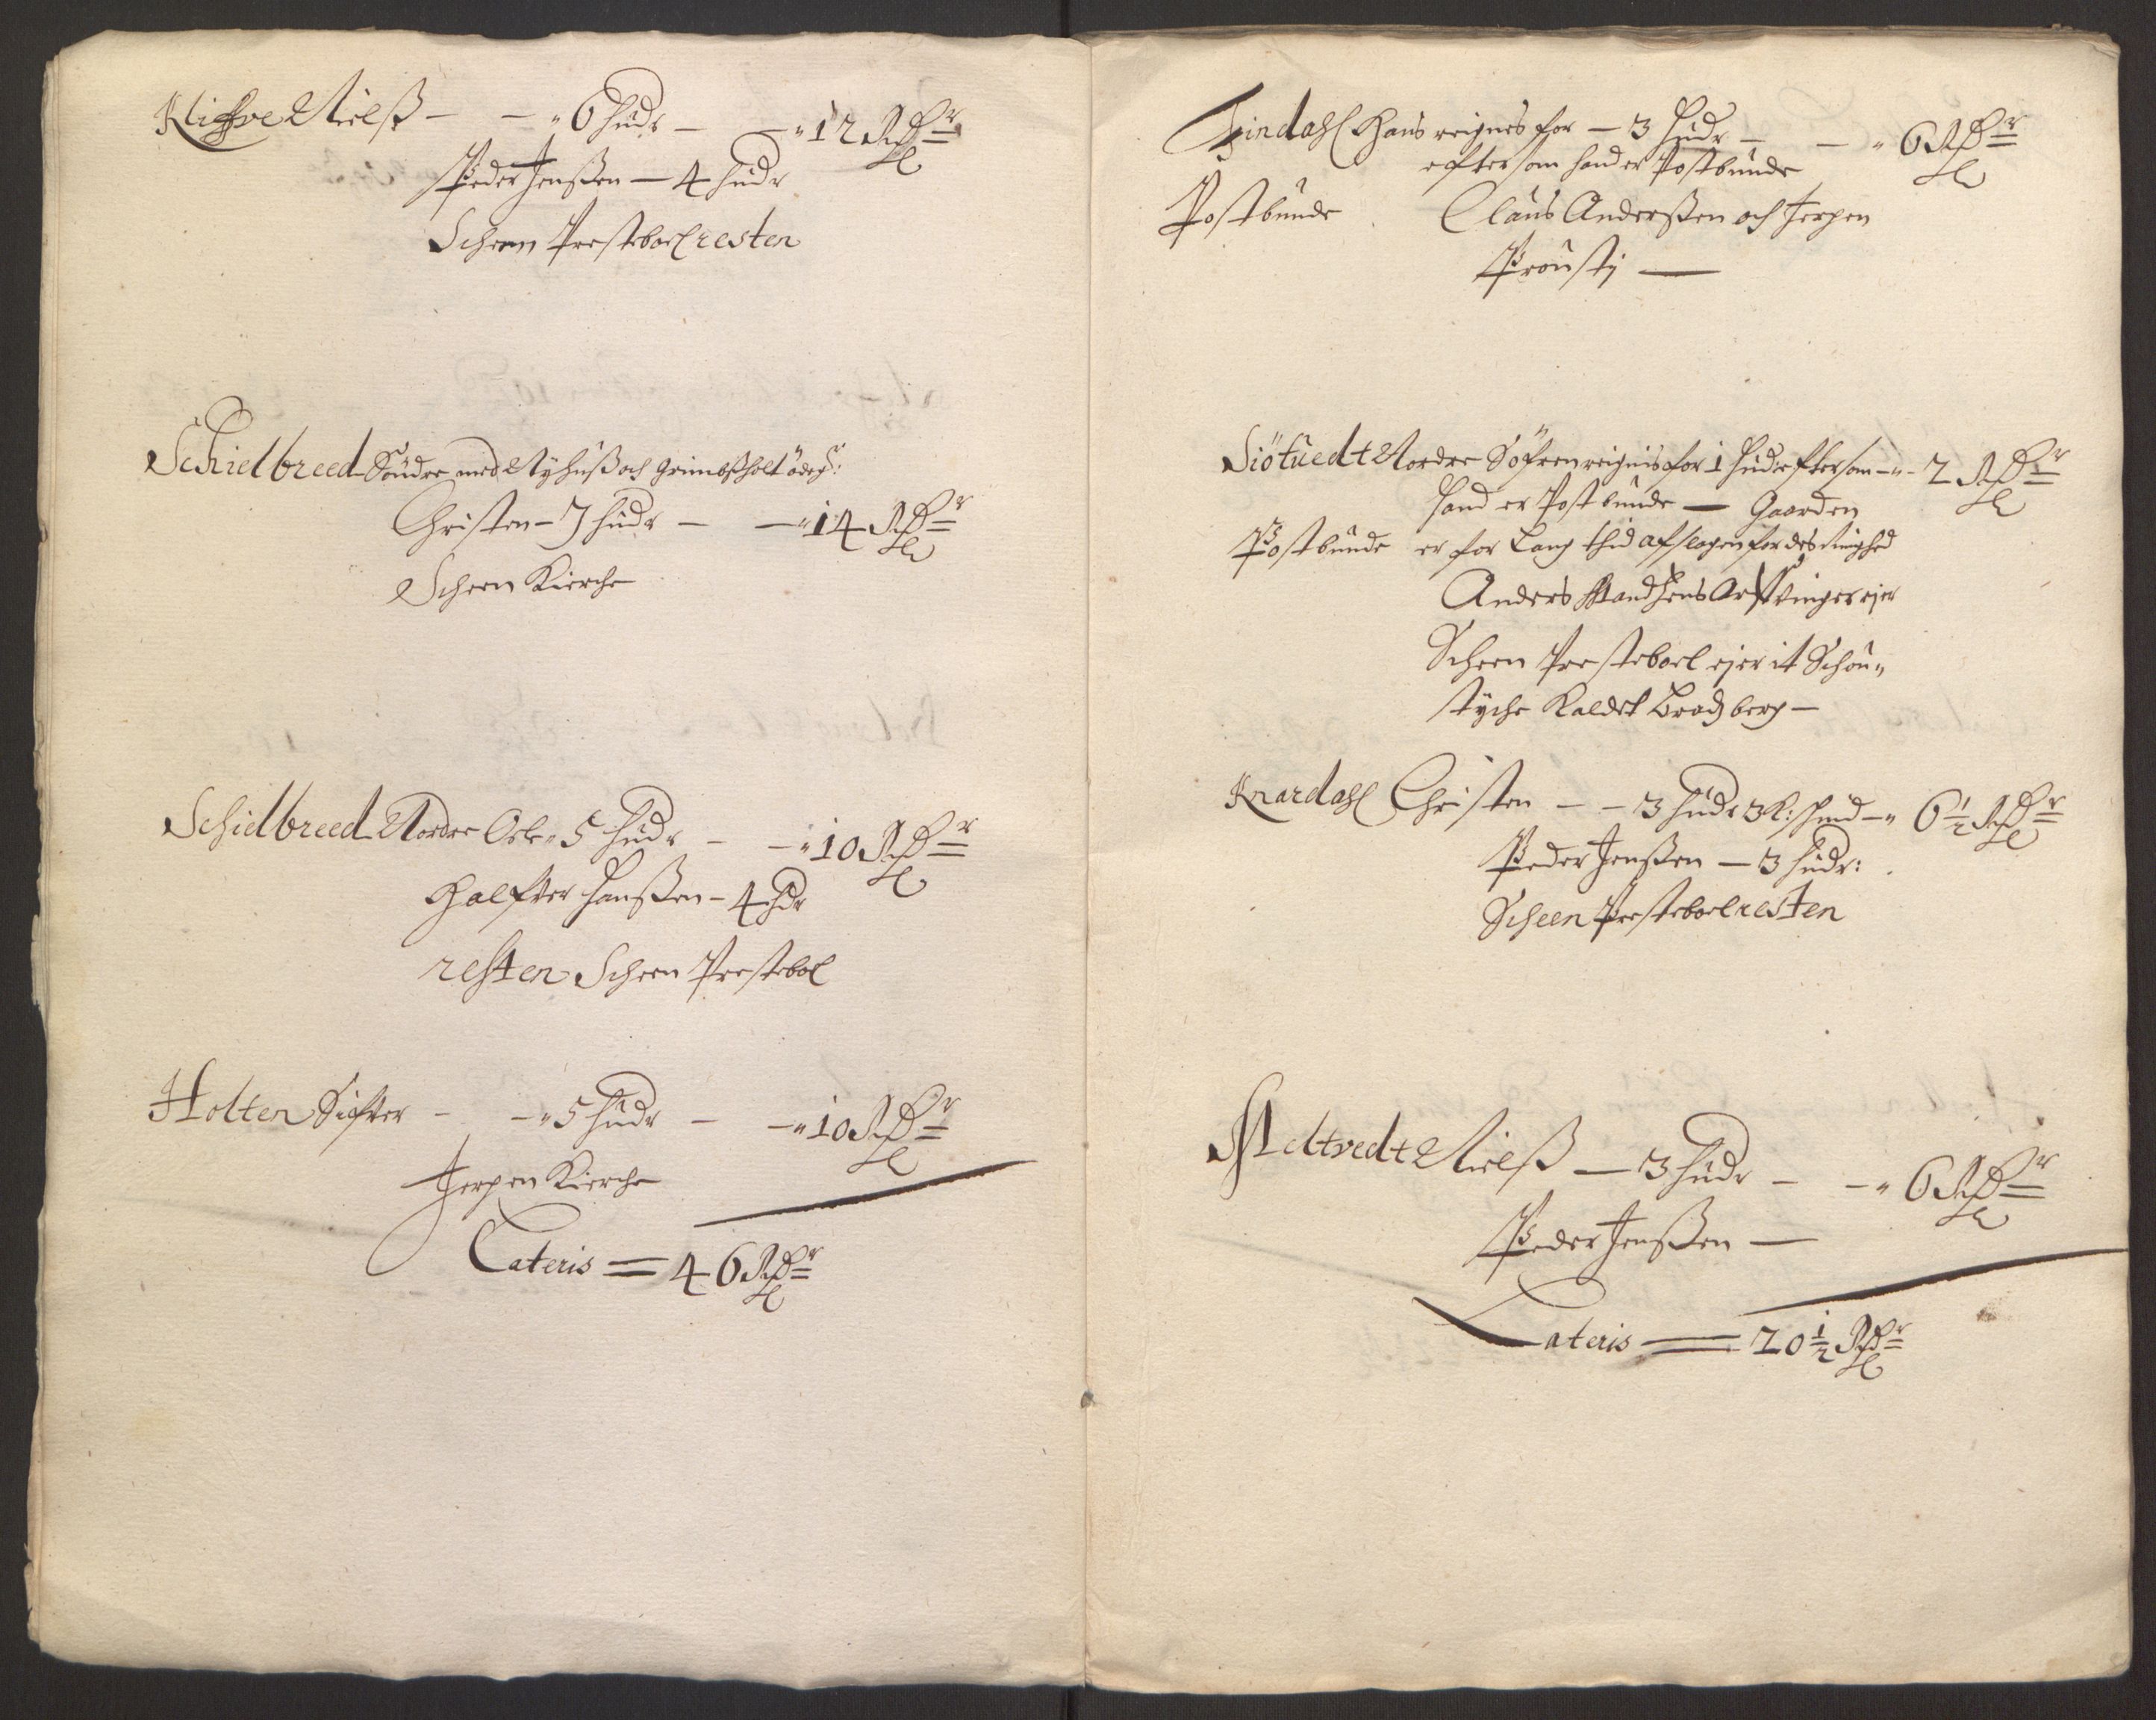 Kleffve Nielß – – " 6 hudr – – " 12 Rdr
Peder Jenßen – 4 hudr
Scheen Presteboel resten
Schielbreed Söndre med Nyhuß och Grimbßholt ödeg:
Christen – 7 hudr – – " 14 Rdr
Scheen Kierche
Schielbreed Nordre Ole " 5 hudr – – " 10 Rdr
Halfver Hanßen – 4 hdr
resten Scheen Prestebol
Holten Sifver – – " 5 hudr – – " 10 Rdr
Jerpen Kierche
Lateris = 46 Rdr
Hans reignes for – 3 hudr – – " 6 Rdr
eftersom hand er Postbunde
Postbunde Claus Anderßen och Jerpen
Prousti —
Siötuedt Nordre Söfren reignis for 1 hud eftersom – " – 2 Rdr
hand er Postbunde — Gaarden
Postbunde er for Lang thid afslagen for des ringhed
Anders Madsens Arfvinger ejer
Scheen Presteboel ejer it Schou„
styche Kaldet Bradsberg –
Knardahl Christen – – 3 hudr 3 K: schind – " 6 1/2 Rdr
Peder Jenßen — 3 hudr:
Scheen Presteboel resten
Meltvedt Nielß — 3 hudr – – " 6 Rdr
Peder Jenßen —
Lateris = 20 1/2 Rdr